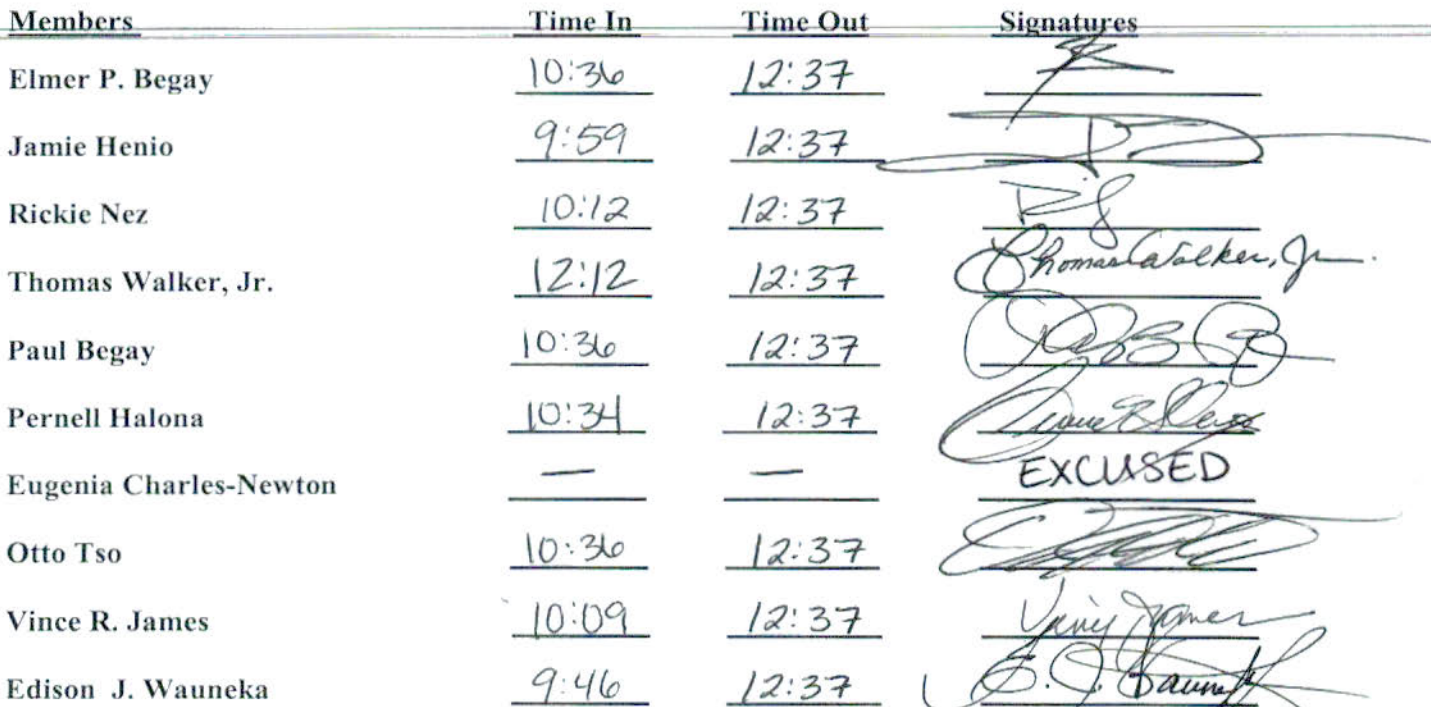 Members Time In Time Out Signatures
Elmer P. Begay 10:36 12:37
Jamie Henio 9:59 12:37
Rickie Nez 10:12 12:37
Thomas Walker, Jr. 12:12 12:37 Thomas Walker, Jr.
Paul Begay 10:36 12:37
Pernell Halona 10:34 12:37
Eugenia Charles-Newton — — EXCUSED
Otto Tso 10:36 12:37
Vince R. James 10:09 12:37 James
Edison J. Wauneka 9:46 12:37 E. J. Wauneka